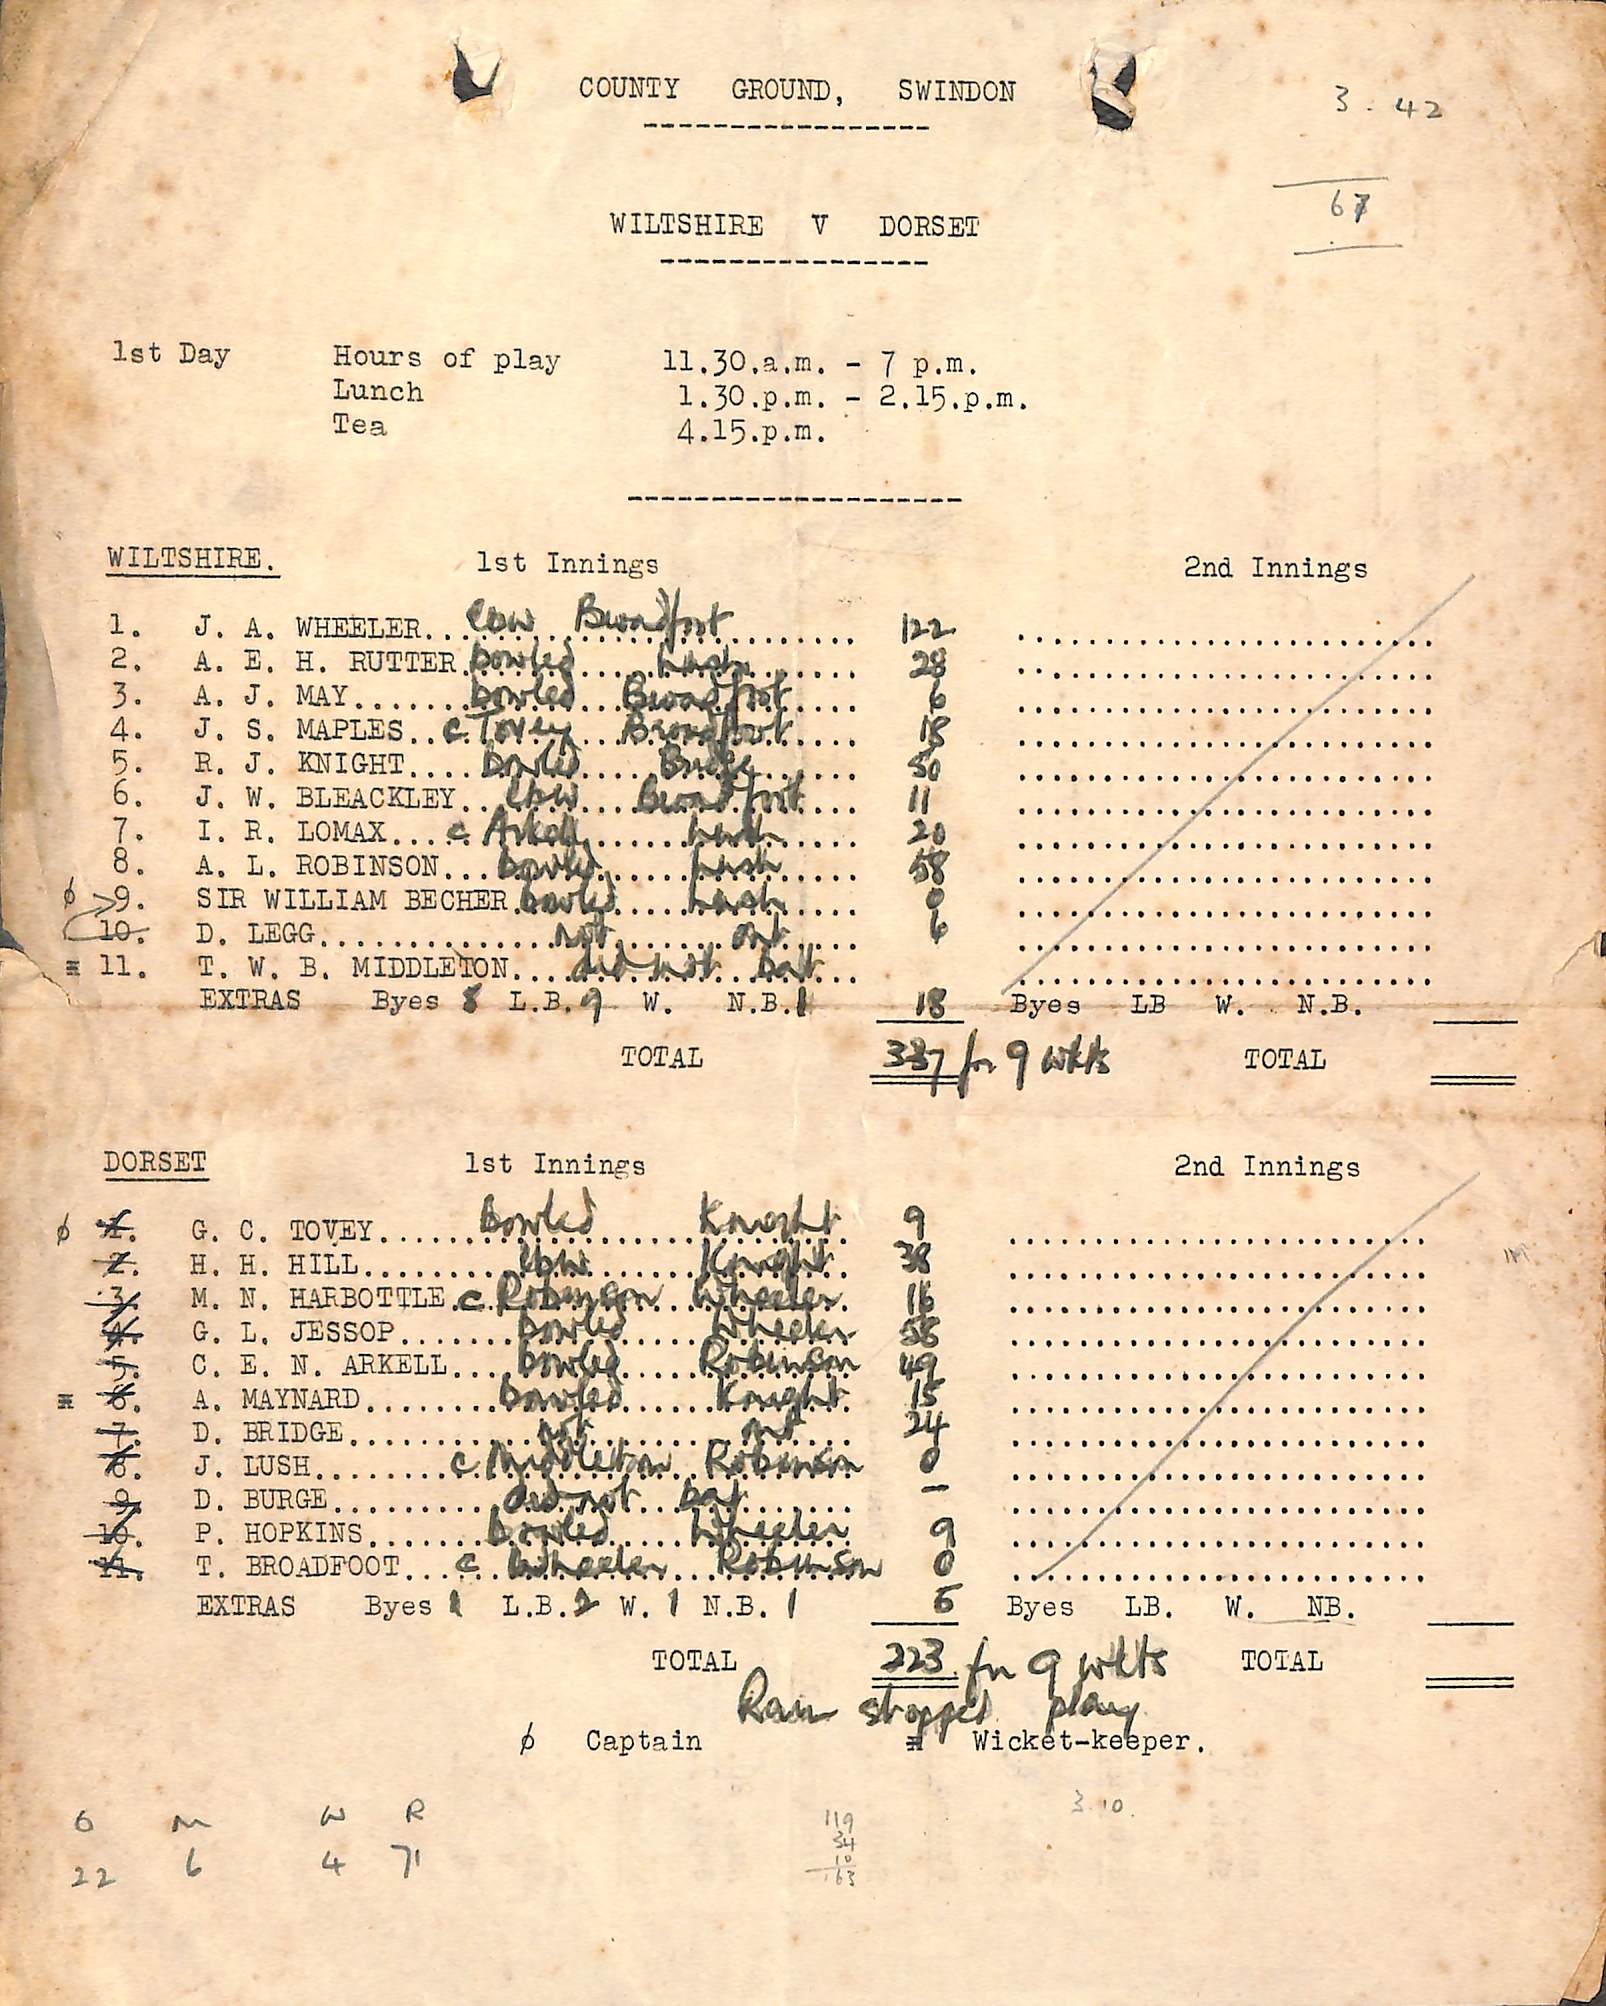 COUNTY GROUND, SWINDON
3 . 42
67
WILTSHIRE V DORSET
1st Day Hours of play 11.30.a.m. - 7 p.m.
Lunch 1.30.p.m. - 2.15.p.m.
Tea 4.15.p.m.
WILTSHIRE. 1st Innings 2nd Innings
1. J. A. WHEELER lbw Broadfoot 122
2. A. E. H. RUTTER bowled Lush 28
3. A. J. MAY bowled Broadfoot 6
4. J. S. MAPLES c Tovey Broadfoot 18
5. R. J. KNIGHT bowled Bridge 50
6. J. W. BLEACKLEY lbw Broadfoot 11
7. I. R. LOMAX c Arkell Lush 20
8. A. L. ROBINSON bowled Lush 58
ϕ 9. SIR WILLIAM BECHER bowled Lush 0
10. D. LEGG not out 6
11. T. W. B. MIDDLETON did not bat
EXTRAS Byes 8 L.B. 9 W. N.B. 1 18 Byes LB W. N.B.
TOTAL 337 for 9 wkts TOTAL
DORSET 1st Innings 2nd Innings
ϕ 1. G. C. TOVEY Bowled Knight 9
2. H. H. HILL lbw Knight 38
3. M. N. HARBOTTLE c Robinson Wheeler 16
4. G. L. JESSOP bowled Wheeler 58
5. C. E. N. ARKELL bowled Robinson 49
6. A. MAYNARD bowled Knight 15
7. D. BRIDGE not out 24
8. J. LUSH c Middleton Robinson 0
9. D. BURGE did not bat –
10. P. HOPKINS bowled Wheeler 9
11. T. BROADFOOT c Wheeler Robinson 0
EXTRAS Byes 1 L.B. 2 W. 1 N.B. 1 5 Byes LB. W. NB.
TOTAL 223 for 9 wkts TOTAL
Rain stopped play
ϕ Captain Wicket-keeper.
3.10.
O M W R
22 6 4 71
119
34
10
163